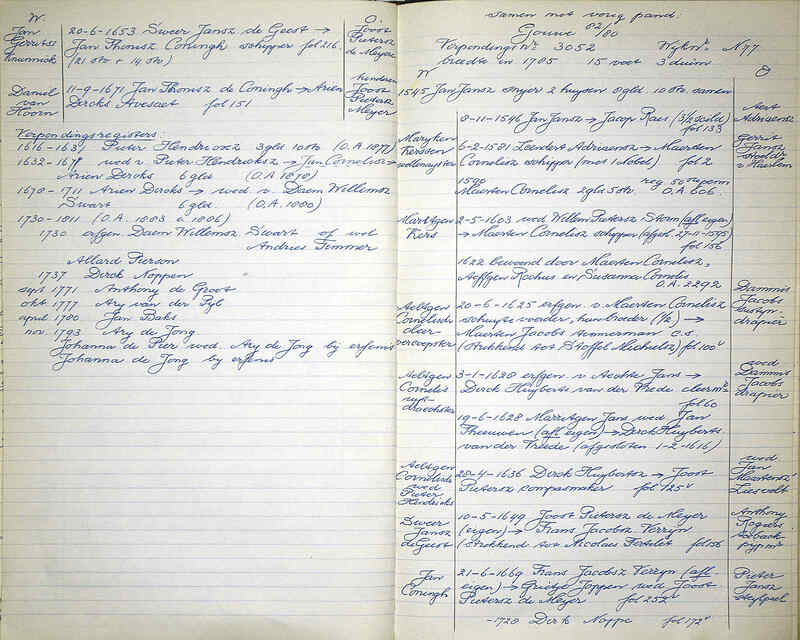 W.
O.
Jan
Gerritsz
20-6-1653 Sweer Jansz de Geest →
Jan Thonisz Coningh schipper fol 216.
(21 otr + 14 otr)
Joost
Pietersz
de Meyer
Daniel
van
Hoorn
11-9-1671 Jan Thonisz de Coningh → Arien
Dircks Avesaet fol 151
kinderen
Joost
Pietersz
Meyer
Verpondingsregisters:
1616-1632 Pieter Hendricksz 3 gls 10 st (O.A. 1877)
1632-167 wed v. Pieter Hendricksz → Jan Cornelisz →
Arien Dircks 6 gld (O.A. 1878)
1670-1711 Arien Dircks → wed v. Daem Willemsz
Swart 6 gld (O.A. 1880)
1730-1811 (O.A. 1883 à 1886)
1730 erfgen. Daem Willemsz Swart of wel
Andries Timmer
Allard Pierson
1737 Dirck Noppen
sept 1771 Anthony de Groot
okt 1777 Ary van der Pijl
april 1780 Jan Baks
nov. 1793 Ary de Jong
Johanna de Pier wed. Ary de Jong bij erfenis
Johanna de Jong by erfenis
samen met vorig pand:
Gouwe 82/80
Verpondings Nr 3052 Wijk Nr. N77
breedte in 1785 15 voet 3 duim
W
O
1545 Jan Jansz snyer 2 huysen 8 gld. 10 st. samen
8-11-1546 Jan Jansz → Jacop Raes (3/2 scild)
fol 133
Aert
Adriaensz
Maryken
Kerssen
6-2-1581 Leendert Adriaensz → Maerten
Cornelisz schipper (met 1 obel) fol 2
Gerrit
Jansz
v. Haerlem
1580 reg. 50e penn
Maerten Cornelisz 2 gls 5 st. O.A. 606.
Marritgen
Kers
2-5-1603 wed Willem Pietersz Storm (afl eigen)
→ Maerten Cornelisz schipper (afgel. 27-11-1595)
fol 156
1622 bewoond door Maerten Cornelisz,
Aeffgen Rochus en Susanna Cornelis
O.A. 2292
Aeltgen
Cornelisdr
20-6-1625 erfgen. v. Maerten Cornelisz
schuytevoerder, hun broeder (1/2) →
Maerten Jacobs timmerman c.s.
(strekkend tot Stoffel Michielsz) fol 100v
Dammis
Jacobs
drapier
Aeltgen
Cornelis
3-1-1628 erfgen v Aechte Jans →
Dirck Huyberts van der Vrede cleerm.
fol 60
wed
Dammis
Jacobs
drapier
19-6-1628 Marritgen Jans wed Jan
Theeuwen (afl eigen) → Dirck Huyberts
van der Vrede (afgesloten 1-2-1616)
Aeltgen
Cornelisdr
wed
Pieter
Hendricks
28-4-1636 Dirck Huybertsz → Joost
Pietersz compasmaker fol 125v
wed.
Jan
Maertensz
Liesvelt
Sweer
Jansz
de Geest
10-5-1649 Joost Pietersz de Meyer
(eigen) → Frans Jacobsz Verryn
(strekkend tot Nicolaes Fortelet fol 56
Anthony
Rogiers
toeback
pypmr
Jan
Coningh
21-6-1669 Frans Jacobsz Verryn (afl
eigen) → Grietje Joppen wed Joost
Pietersz de Meyer fol 252v
Pieter
Jansz
-1728 Dirk Noppe fol 172v